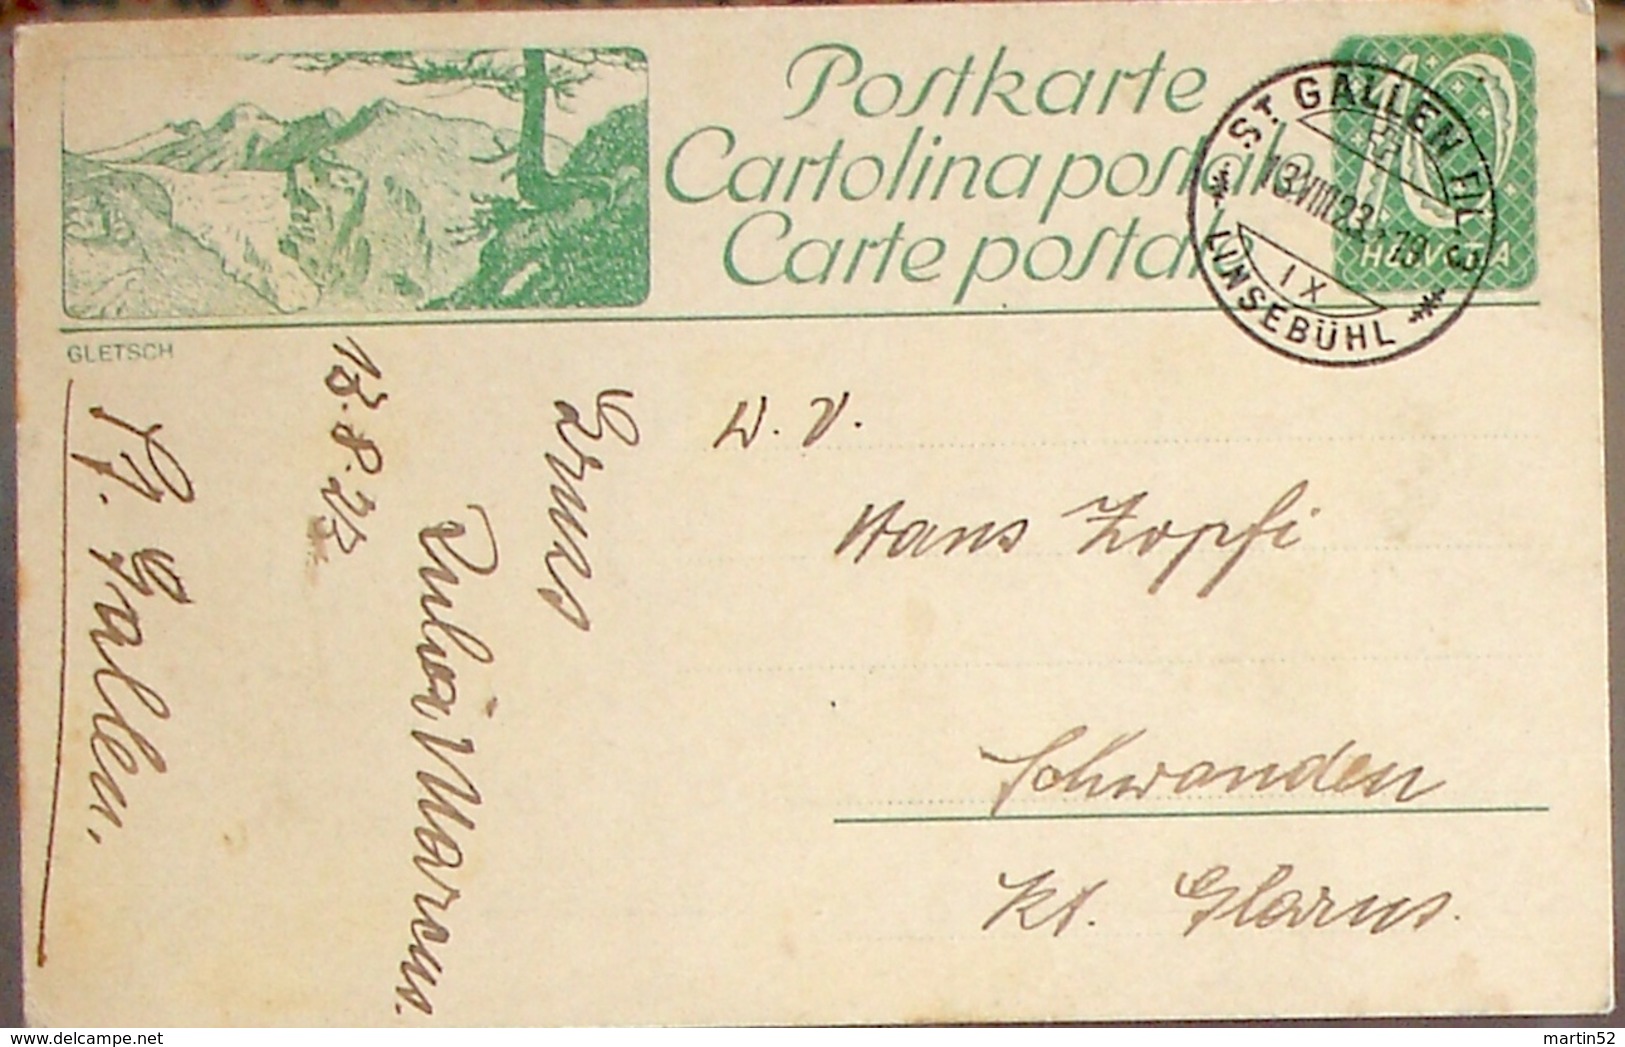 Postkarte
Cartolina postale
Carte postale
10
HELVETIA
ST. GALLEN FIL. 3
13.VIII.23.-19
IX
LINSEBÜHL
GLETSCH
St. Gallen.
13. 8. 23
Marcus.
W. V.
Hans Zopfi
Schwanden
Kt. Glarus.
martin52